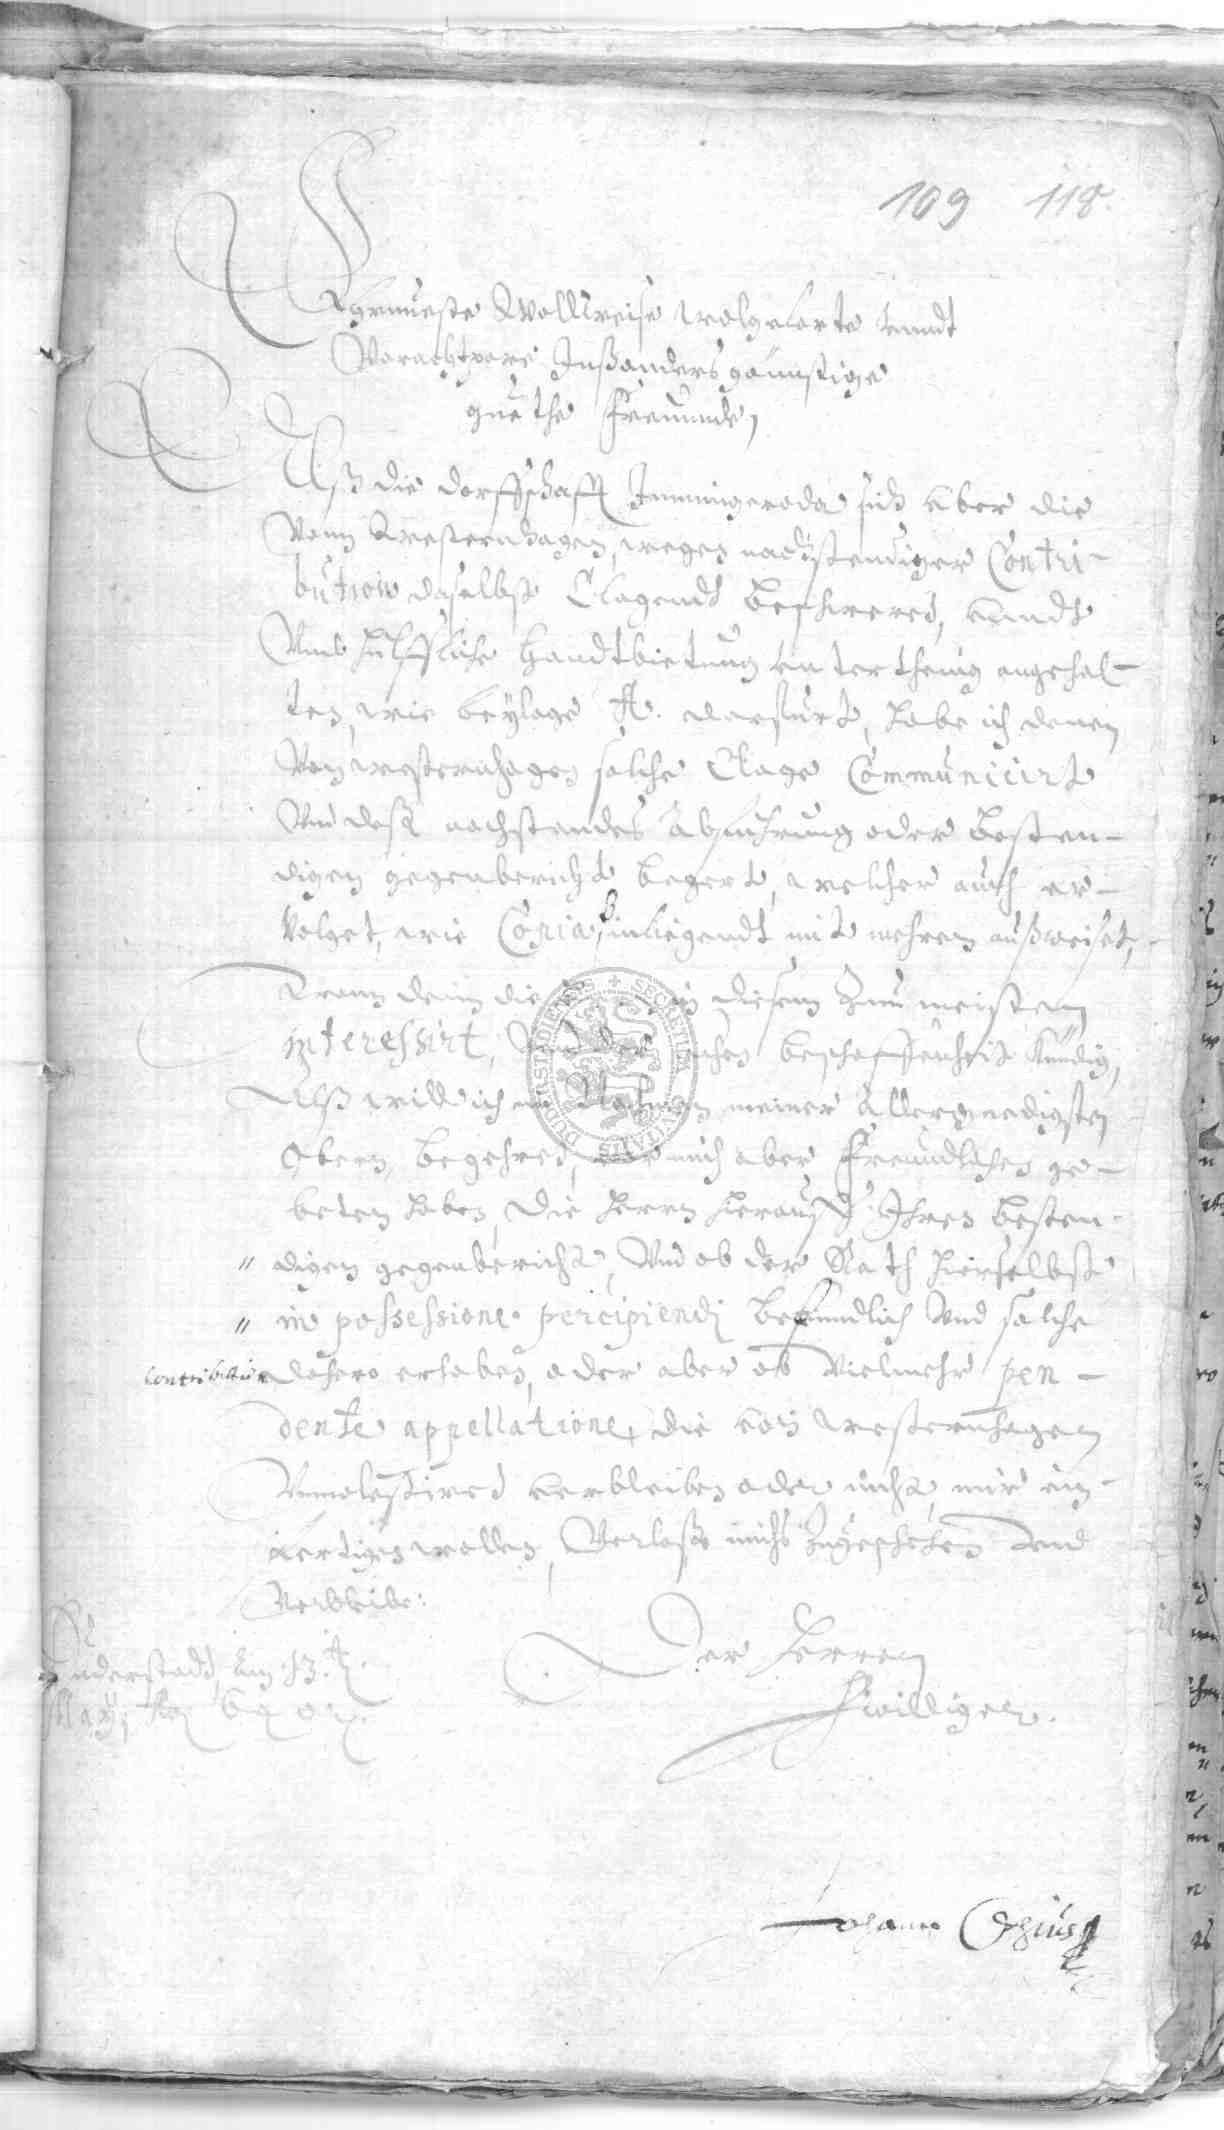 109 118.
Ehrnueste Wollweise wolgelarte unndt
Vorachtpare Insonders günstige
guethe Freunnde,
Alß die Dorffschafft Immingeroda sich uber die
Vonn Westernhagen, wegen nachstendiger Contri-
bution daselbst Clagendt beschweret, unndt
Umb hülffliche Handtbietung unterthenig angehal-
ten, wie beylage A. darfürt, habe ich denen
Von westernhagen solche Clage Communicirt
Und deß nachstandes abführung oder besten-
digen gegenbericht begert, welcher auch er-
Volget, wie Copia B inliegendt mit mehren außweiset,
Wann dann die in diesem zum meisten
interessirt, Und der sachen beschaffenheit kündig,
Alß will ich im Nahmen meiner Allergnedigsten
Obern, begehred, vor mich aber Freundliches ge-
beten haben, die Herrn hierauff Ihren besten-
" digen gegenbericht, Und ob der Rath hierselbst
" in possessione percipiendi befindlich Und solche
Contribution dahero erhaben, oder aber ob Vielmehr pen-
dente appellatione, die von westernhagen
Unmolestired verbleiben oder nicht, mir ein-
fertigen wollen, Verlaße michs zugeschehen Und
Verbleibe:
Duderstadt, am 13. t
May, Ao
Der Herren
Fwilliger.
Johann